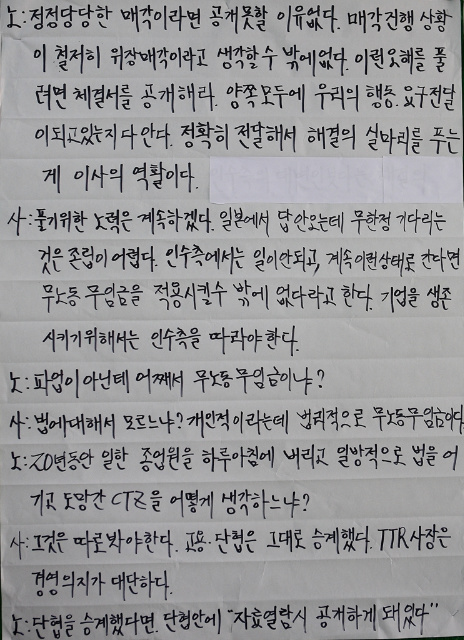 노: 정정당당한 매각이라면 공개못할 이유없다. 매각진행 상황
이 철저히 위장매각이라고 생각할 수 밖에 없다. 이런 오해를 풀
려면 체결서를 공개해라. 양쪽 모두에 우리의 행동, 요구 전달
이 되고 있는지 다 안다. 정확히 전달해서 해결의 실마리를 푸는
게 이사의 역활이다.
사: 풀기위한 노력은 계속하겠다. 일본에서 답 안오는데 무한정 기다리는
것은 존립이 어렵다. 인수측에서는 일이 안되고, 계속 이런상태로 간다면
무노동 무임금을 적용시킬수 밖에 없다라고 한다. 기업을 생존
시키기위해서는 인수측을 따라야 한다.
노: 파업이 아닌데 어째서 무노동무임금이냐?
사: 법에대해서 모르느냐? 개인적이라는데 법리적으로 무노동무임금이다
노: 20년동안 일한 종업원을 하루아침에 버리고 일방적으로 법을 어
기고 도망간 CTZ을 어떻게 생각하느냐?
사: 그것은 따로봐야한다. 고용·단협은 그대로 승계했다. TTR사장은
경영의지가 대단하다.
노: 단협을 승계했다면. 단협안에 "자료열람시 공개하게 돼있다"